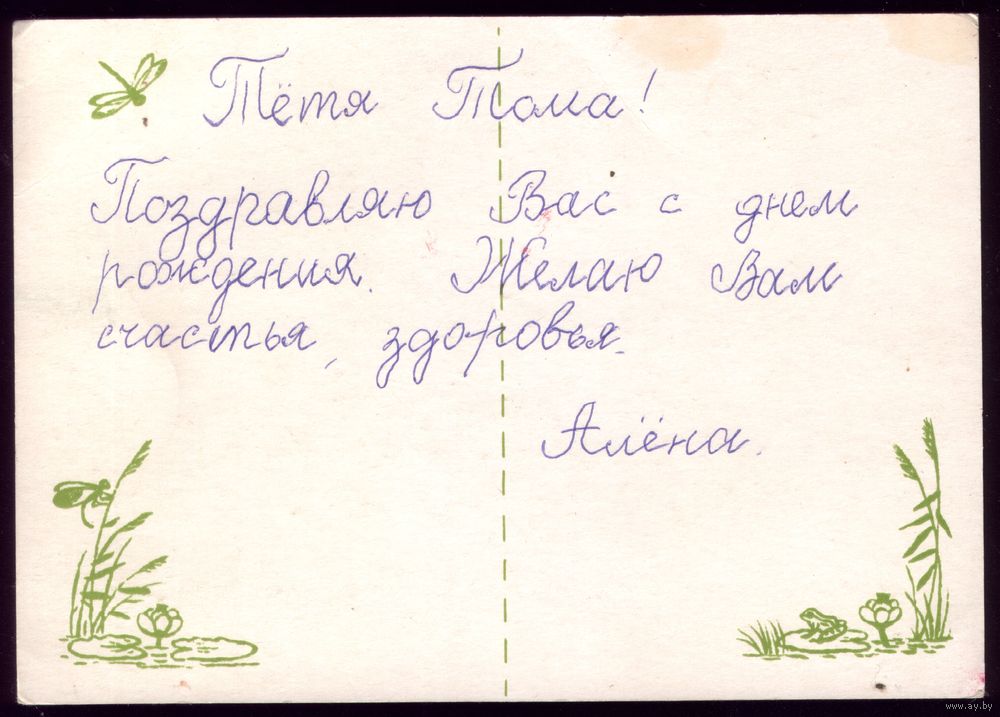 Тётя Тома!
Поздравляю Вас с днем
рождения. Желаю Вам
счастья, здоровья.
Алёна.
www.ay.by